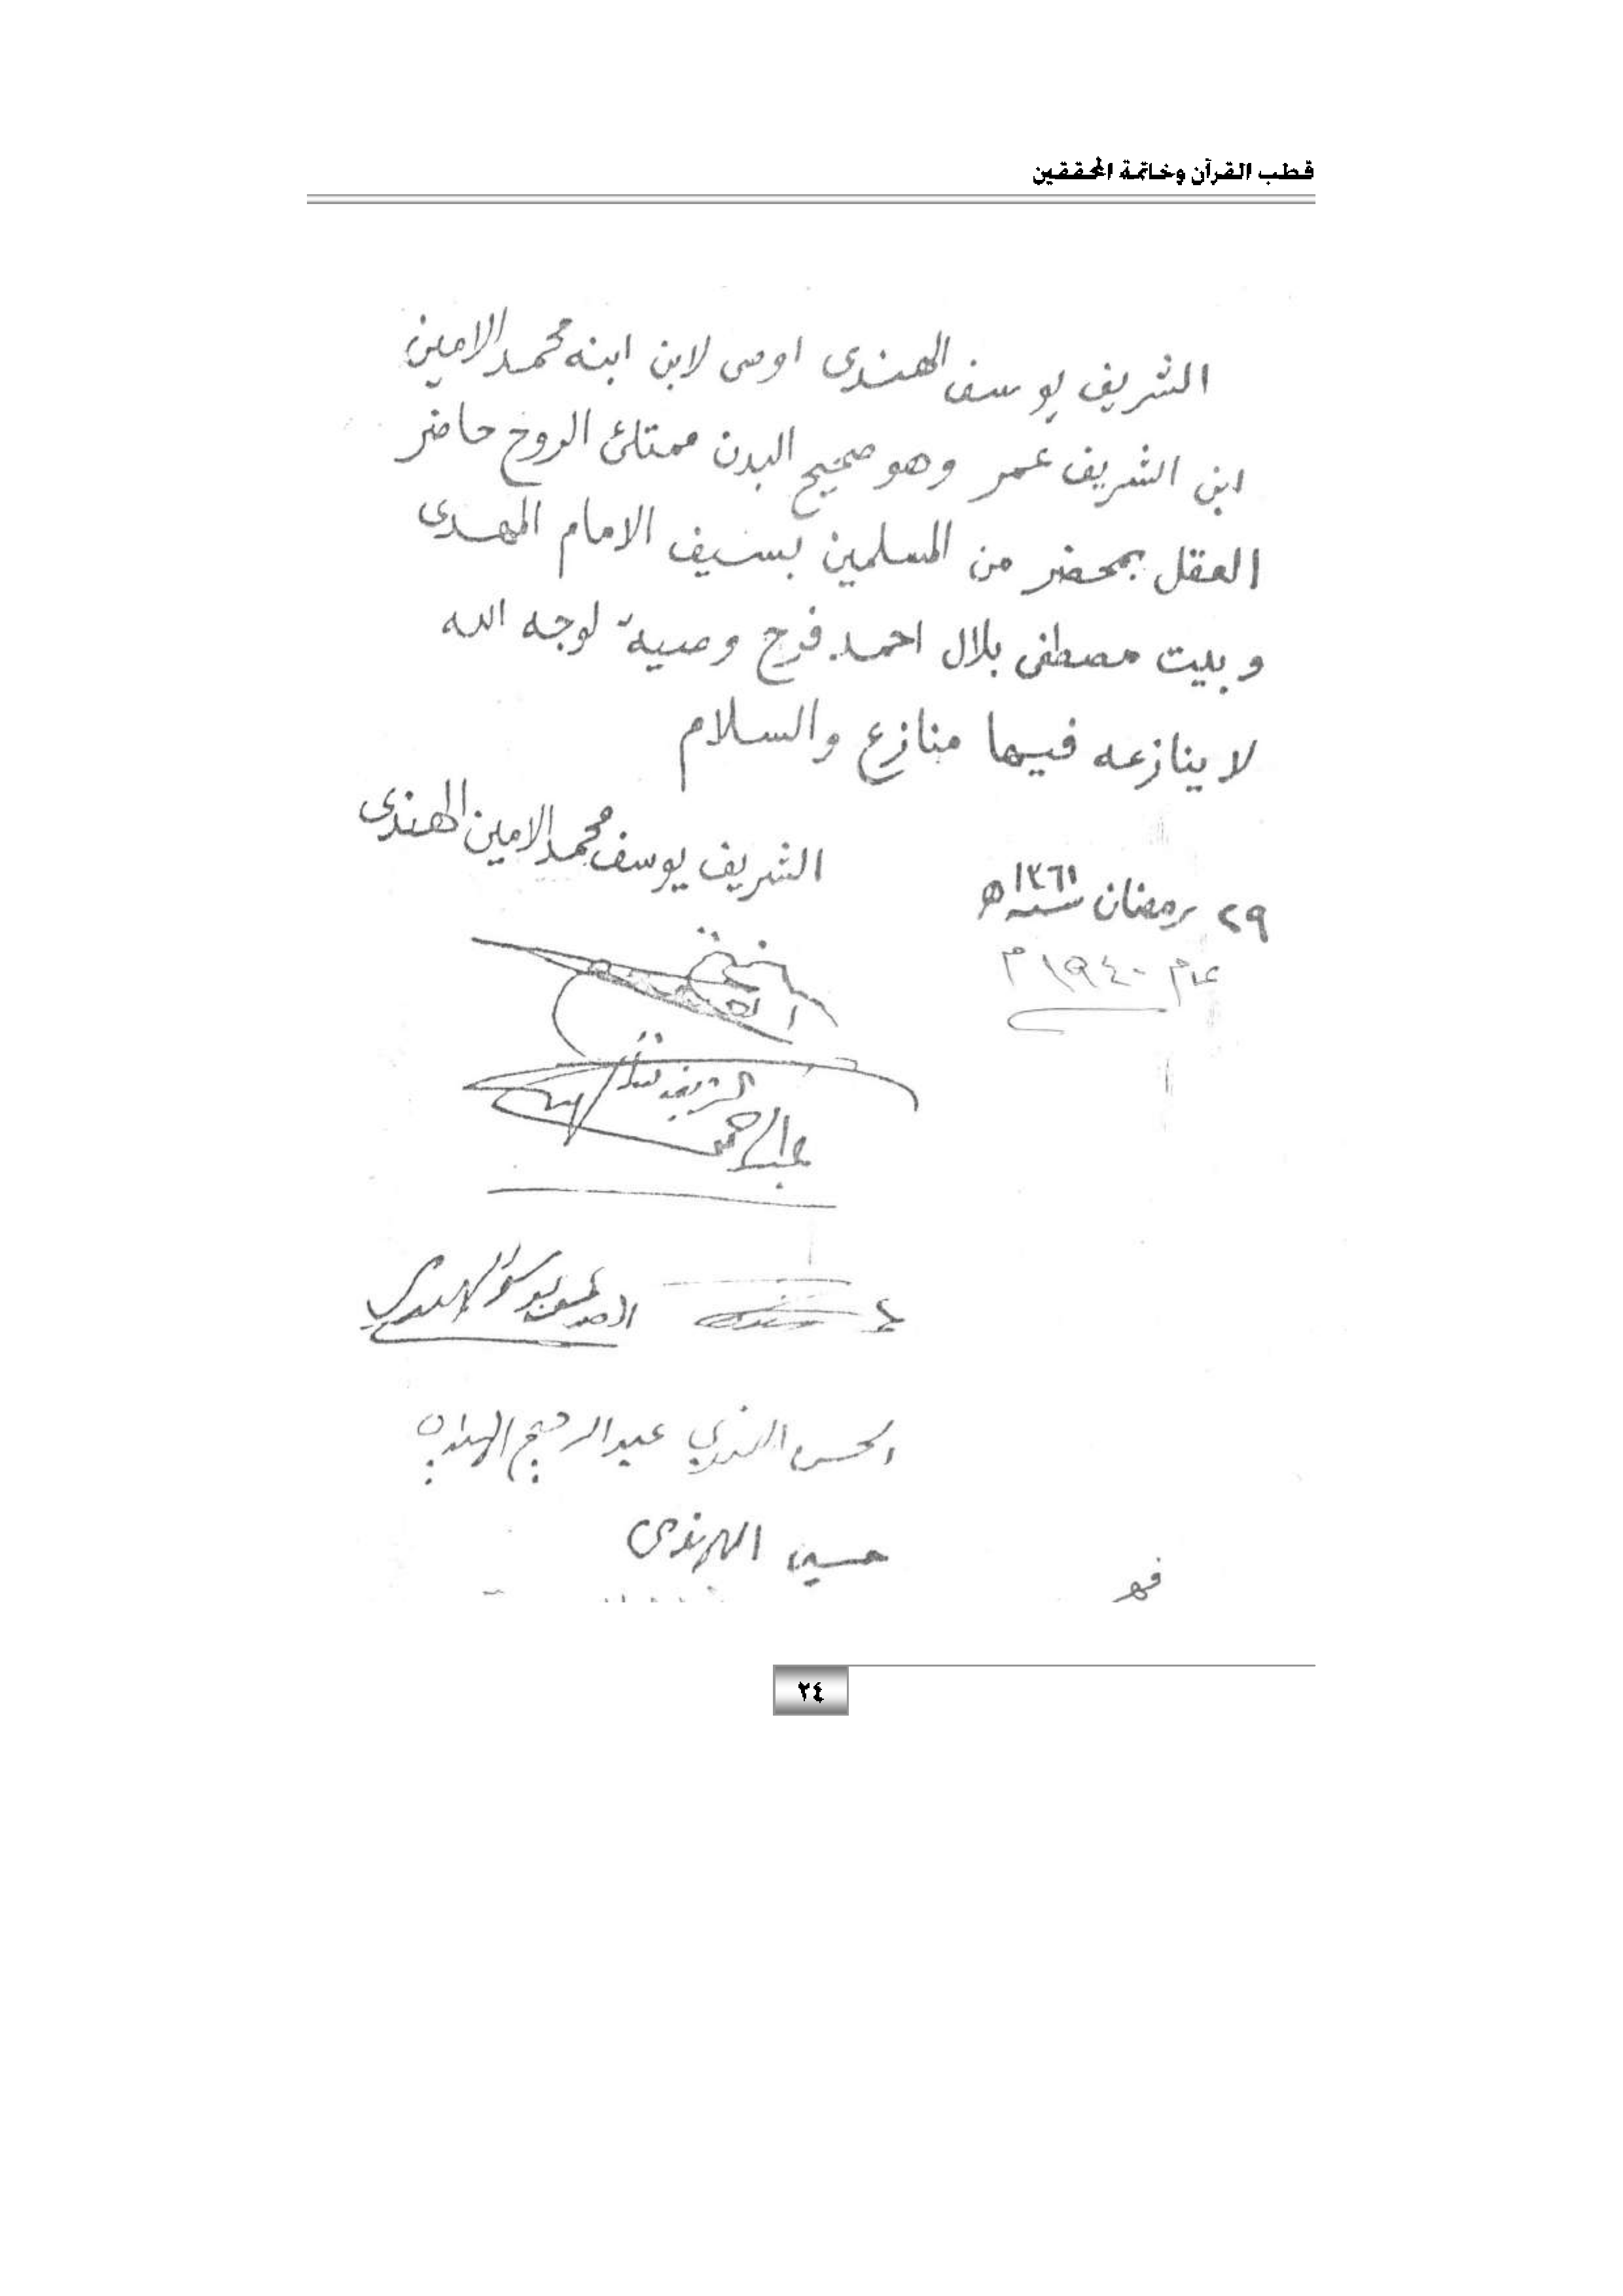 قطب القرآن وخاتمة المحققين
الشريف يوسف الهندى اوصى لابن ابنه محمد الامين
ابن الشريف عمر وهو صحيح البدن ممتلئ الروح حاضر
العقل بمحضر من المسلمين بسيف الامام المهدى
وبيت مصطفى بلال احمد فرح وصية لوجه الله
لا ينازعه فيها منازع والسلام
الشريف يوسف محمد الامين الهندى
٢٩ رمضان سنه ١٣٦١ ه
عام ١٩٤٠ م
الشريف
عبدالرحمن
الحسن الهندي عبدالرحيم الهندي
حسين الهندى
٢٤